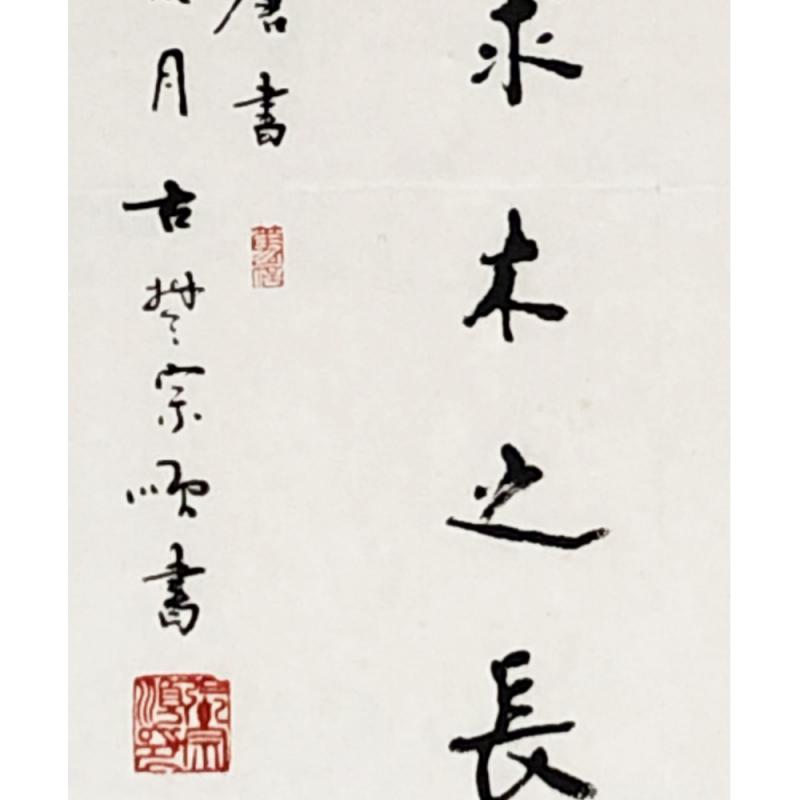 求木之長
唐書
月古楚宗順書